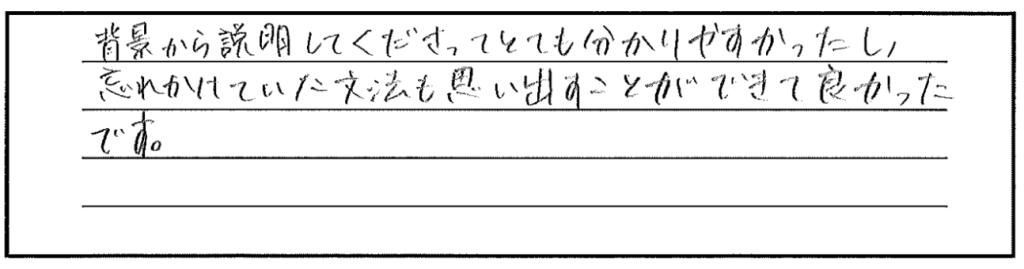 背景から説明してくださってとても分かりやすかったし、
忘れかけていた文法も思い出すことができて良かった
です。